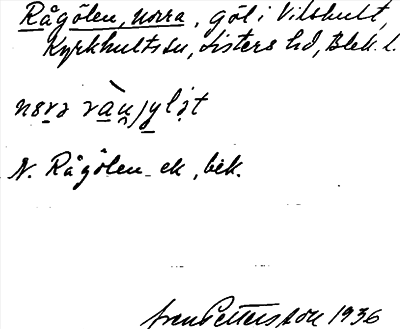 Rågölen, norra, göl i Vilshult,
Kyrkhults sn, Listers hd, Blek. l.
N. Rågölen ek, bek.
Sven Pettersson 1936